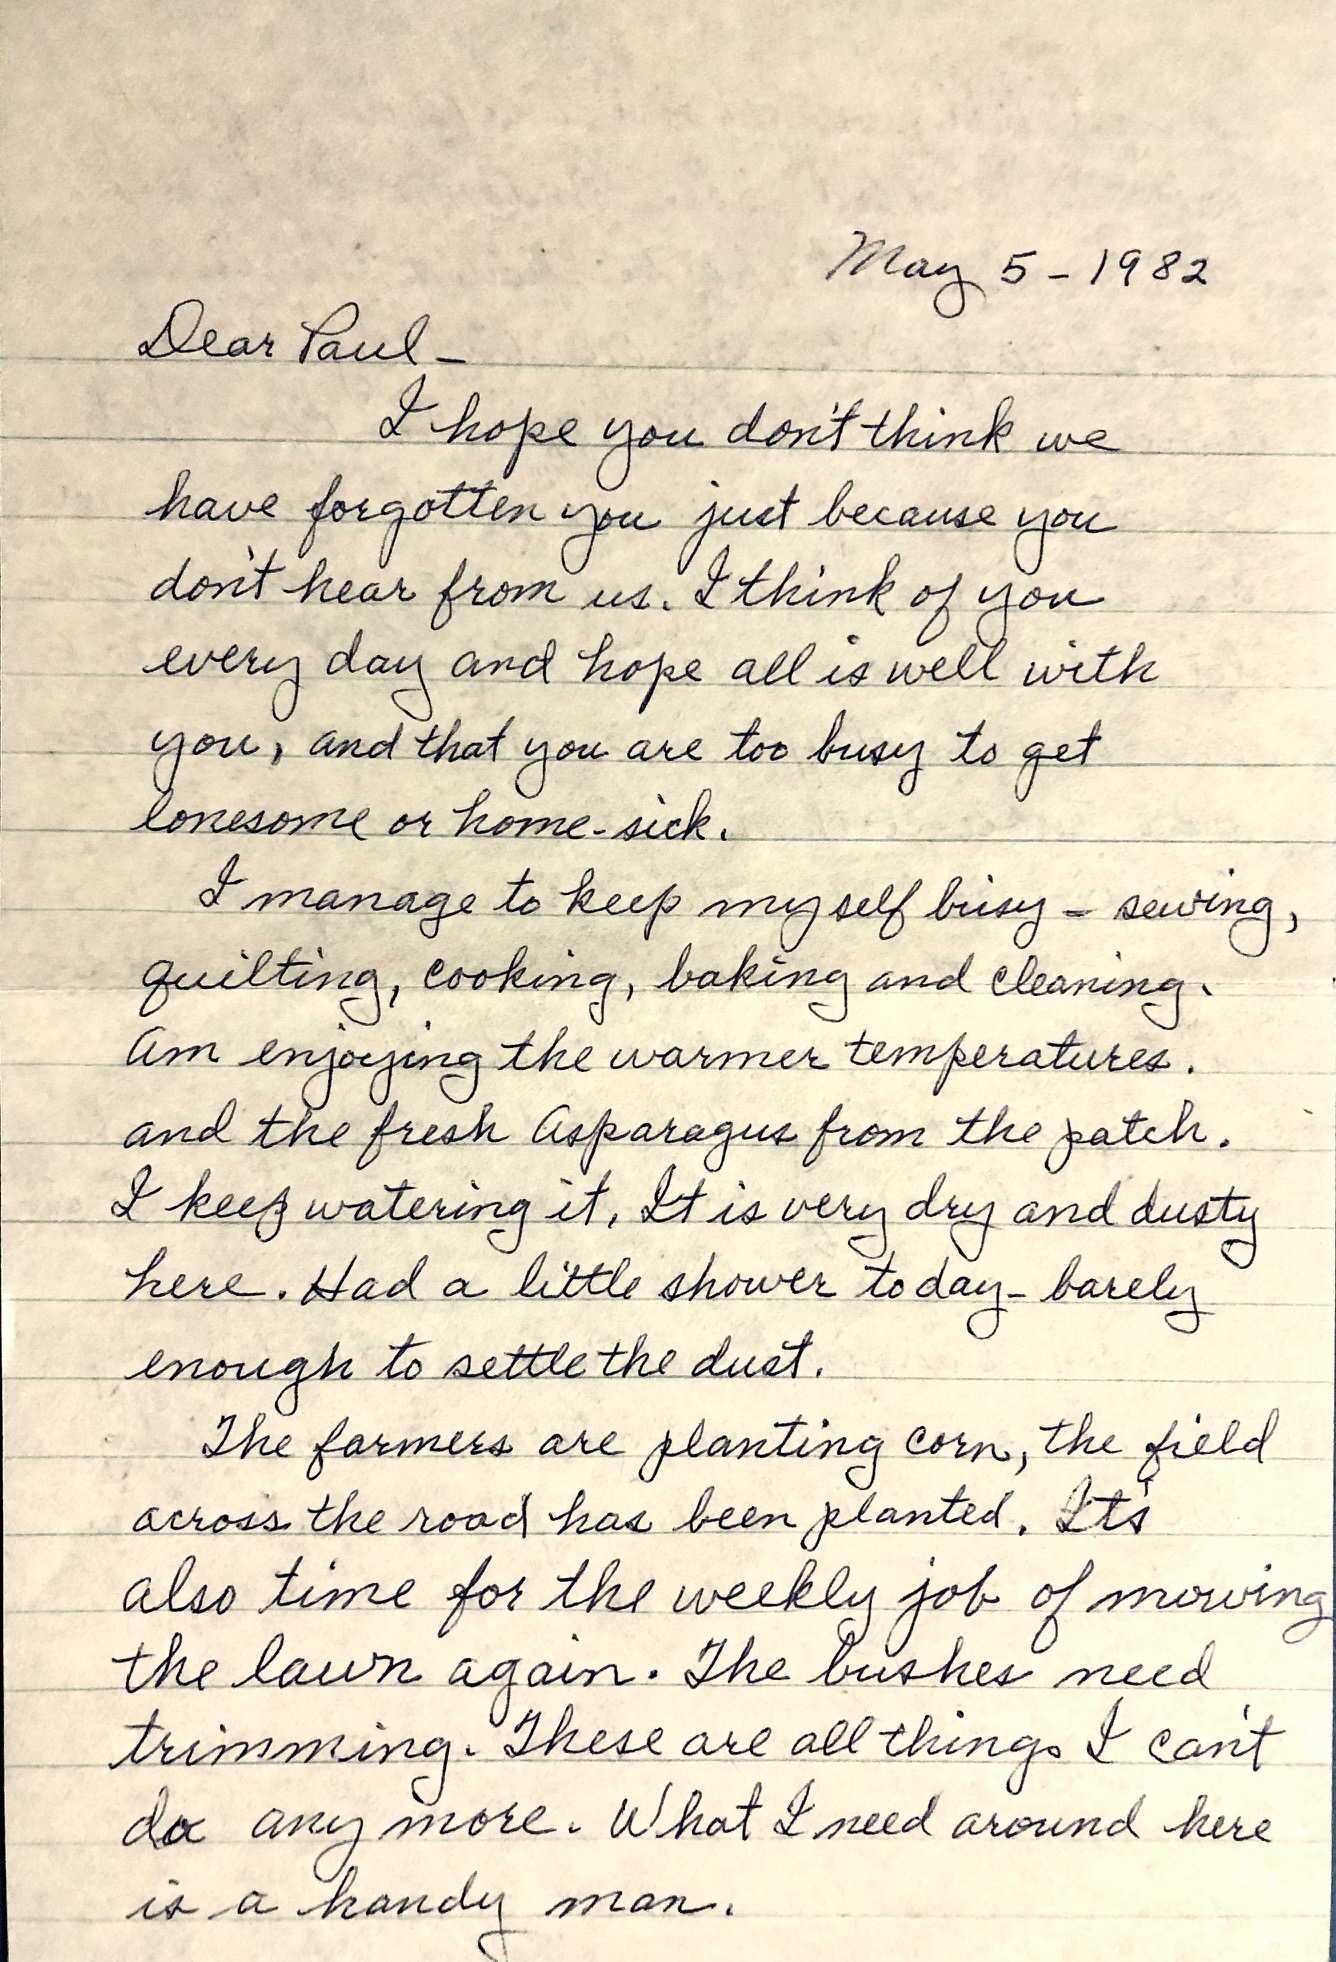 May 5 - 1982
Dear Paul -
I hope you don't think we
have forgotten you just because you
don't hear from us. I think of you
every day and hope all is well with
you, and that you are too busy to get
lonesome or home-sick.
I manage to keep myself busy - sewing,
quilting, cooking, baking and cleaning.
Am enjoying the warmer temperatures.
and the fresh Asparagus from the patch.
I keep watering it. It is very dry and dusty
here. Had a little shower today - barely
enough to settle the dust.
The farmers are planting corn, the field
across the road has been planted. It's
also time for the weekly job of mowing
the lawn again. The bushes need
trimming. These are all things I can't
do any more. What I need around here
is a handy man.